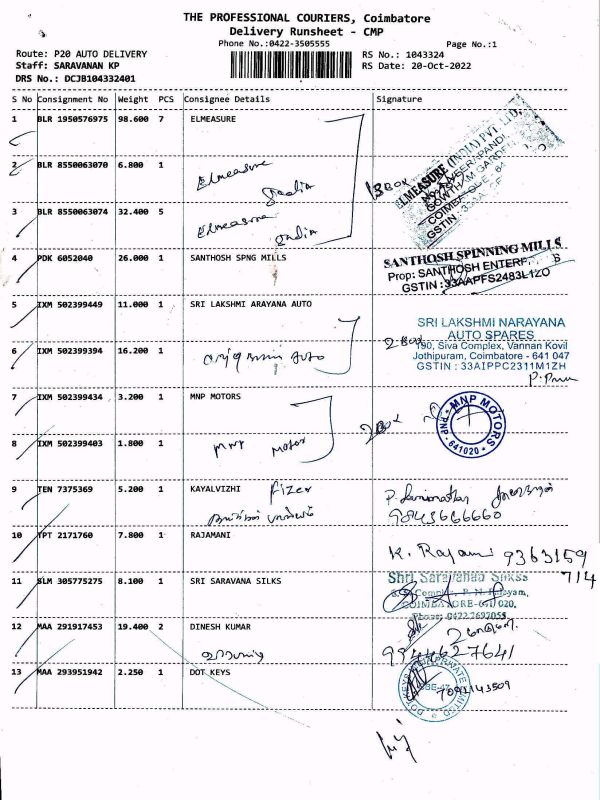 THE PROFESSIONAL COURIERS, Coimbatore
Delivery Runsheet - CMP
Phone No.:0422-3505555
Page No.:1
Route: P20 AUTO DELIVERY
RS No.: 1043324
Staff: SARAVANAN KP
RS Date: 20-Oct-2022
DRS No.: DCJB104332401
S No Consignment No Weight PCS Consignee Details Signature
1 BLR 1950576975 98.600 7 ELMEASURE
ELMEASURE (INDIA) PVT. LTD.
GOWTHAM GARDEN
COIMBATORE
GSTIN : 33
2 BLR 8550063070 6.800 1
Elmeasure
India
13 Box
3 BLR 8550063074 32.400 5
Elmeasure
India
4 PDK 6052040 26.000 1 SANTHOSH SPNG MILLS
SANTHOSH SPINNING MILLS
Prop: SANTHOSH ENTERPRISES
GSTIN : 33AAPFS2483L1ZO
5 IXM 502399449 11.000 1 SRI LAKSHMI ARAYANA AUTO
SRI LAKSHMI NARAYANA
AUTO SPARES
2 Box
190, Siva Complex, Vannan Kovil
Jothipuram, Coimbatore - 641 047
GSTIN : 33AIPPC2311M1ZH
6 IXM 502399394 16.200 1
auto
7 IXM 502399434 3.200 1 MNP MOTORS
2 Box
MNP MOTORS
PNP - 641020
8 IXM 502399403 1.800 1
MNP Motor
9 TEN 7375369 5.200 1 KAYALVIZHI Fizer
9843666660
10 TPT 2171760 7.800 1 RAJAMANI
K. Rajamani 9363159
714
11 SLM 305775275 8.100 1 SRI SARAVANA SILKS
Shri Saravanaa Silkss
Complex, P. N. Palayam,
COIMBATORE-641 020.
Phone: 0422 2697055
12 MAA 291917453 19.400 2 DINESH KUMAR
9944627641
13 MAA 293951942 2.250 1 DOT KEYS
DOT KEYS PRIVATE LIMITED
7092143509